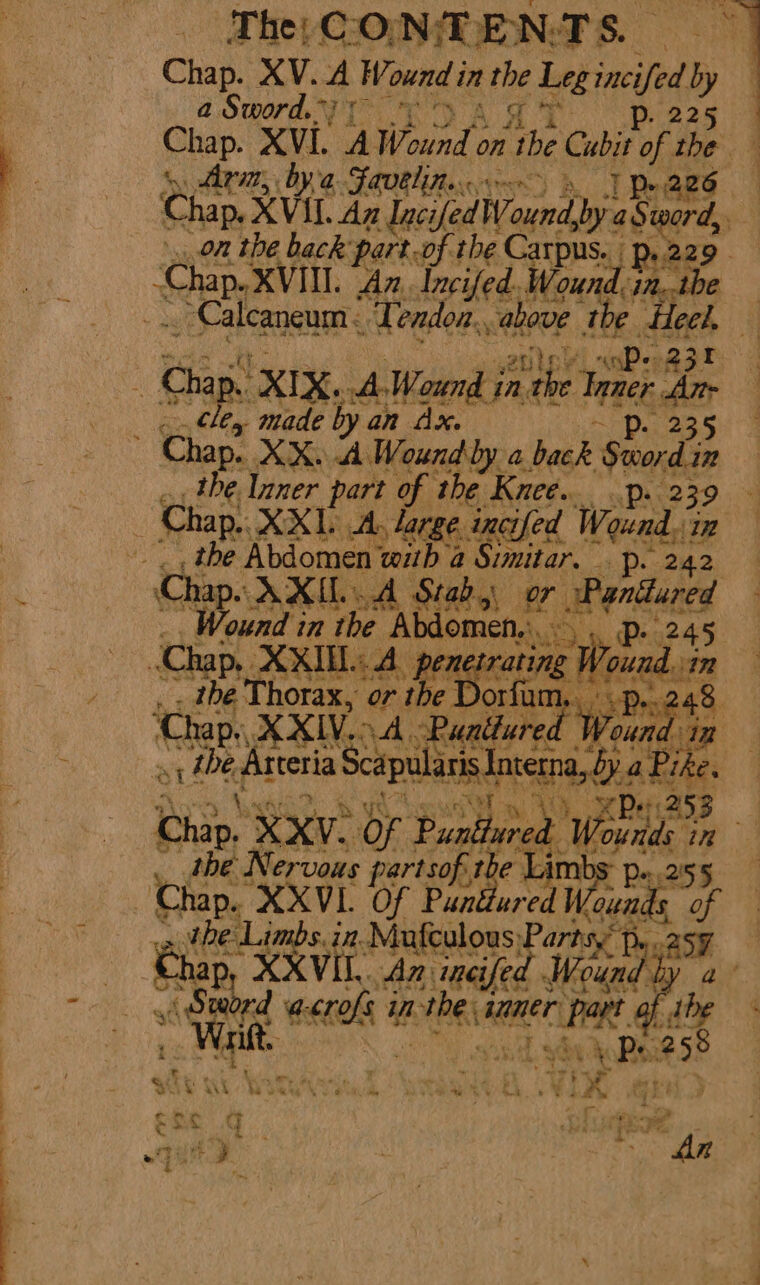 The CONTENTS.
Chap. XV. A Wound in the Leg inciſed by
a Sword. p. 225
Chap. XVI. A Wound on the Cubit of the
Arm, by a Javelin. p. 226
Chap. XVII. An Inciſed Wound, by a Sword,
on the back part of the Carpus. p. 229
Chap. XVIII. An Inciſed Wound in the
Calcaneum Tendon above the Heel.
p. 231
Chap. XIX. A Wound in the Inner An-
cle, made by an Ax. p. 235
Chap. XX. A Wound by a back Sword in
the Inner part of the Knee. p. 239
Chap. XXI. A large inciſed Wound in
the Abdomen with a Simitar. p. 242
Chap. XXII. A Stab, or Punctured
Wound in the Abdomen. p. 245
Chap. XXIII. A penetrating Wound in
the Thorax, or the Dorſum. p. 248
Chap. XXIV. A Punctured Wound in
the Arteria Scapularis Interna, by a Pike.
p. 253
Chap. XXV. Of Punctured Wounds in
the Nervous parts of the Limbs p. 255
Chap. XXVI. Of Punctured Wounds of
the Limbs in Muſculous Parts, p. 257
Chap. XXVII. An inciſed Wound by a
Sword acroſs in the inner part of the
Wriſt. p. 258
An